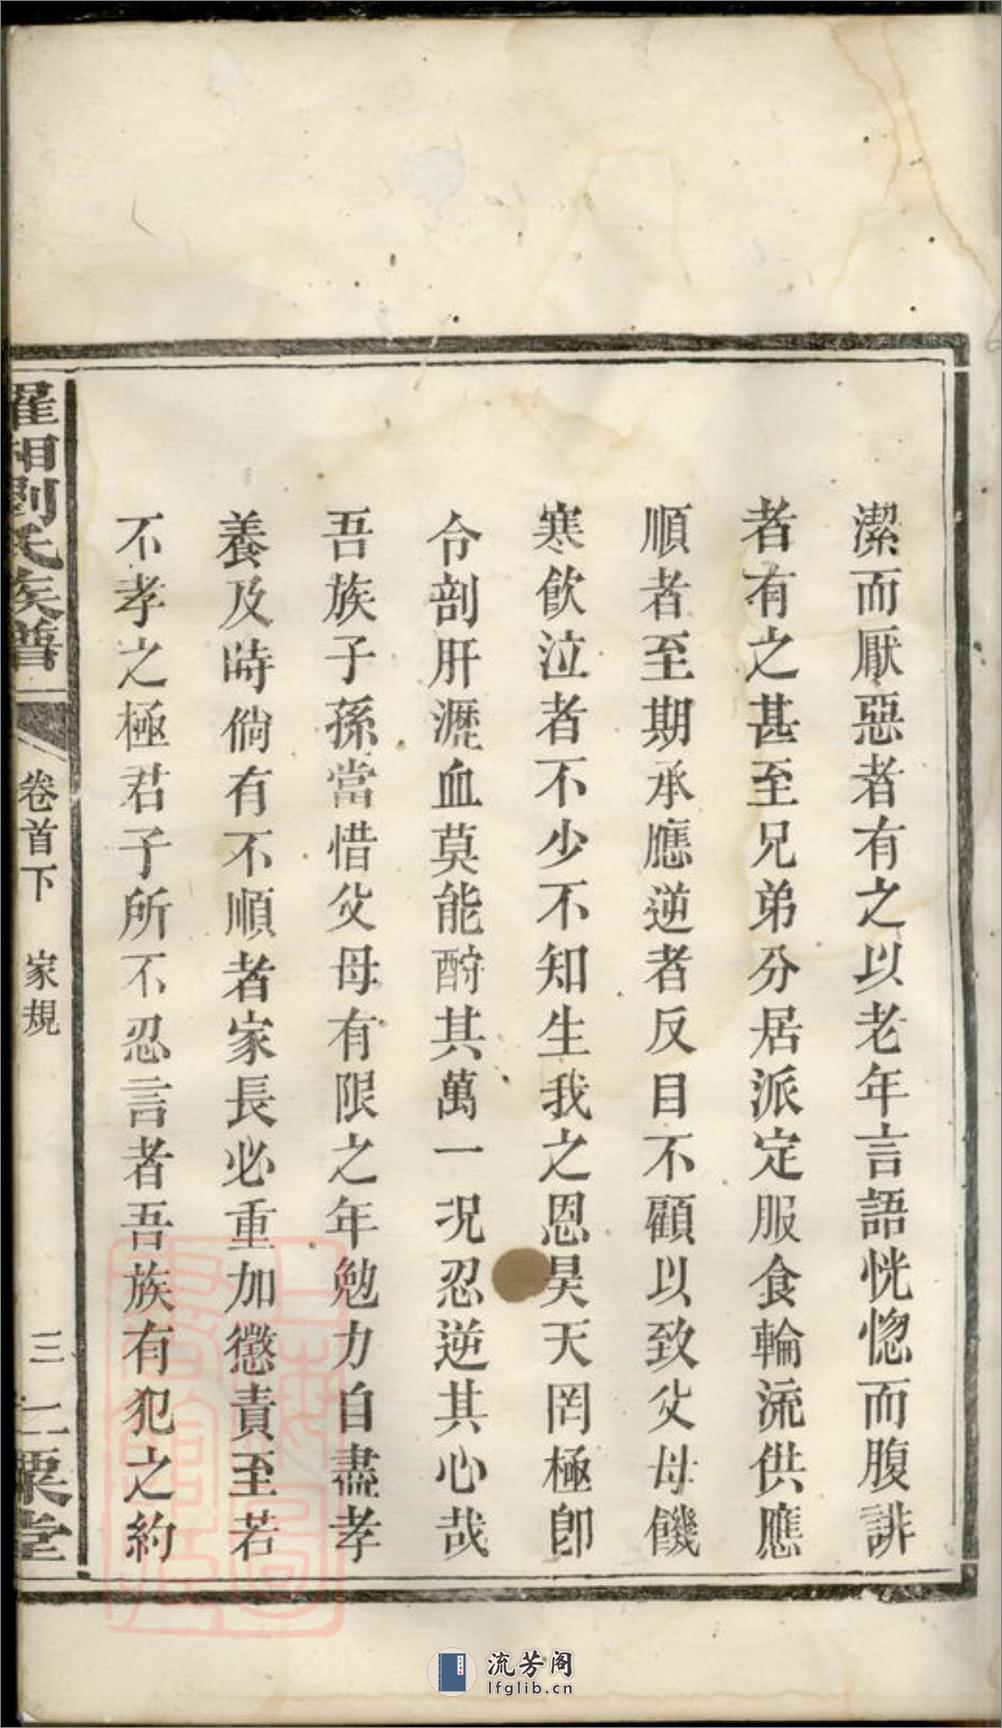 潔而厭惡者有之以老年言語恍惚而腹誹
者有之甚至兄弟分居派定服食輪流供應
順者至期承應逆者反目不顧以致父母饑
寒飮泣者不少不知生我之恩昊天罔極卽
令剖肝瀝血莫能酧其萬一況忍逆其心哉
吾族子孫當惜父母有限之年勉力自盡孝
養及時倘有不順者家長必重加懲責至若
不孝之極君子所不忍言者吾族有犯之約
劉氏族譜
卷首下 家規
三
堂
流芳阁
lfglib.cn